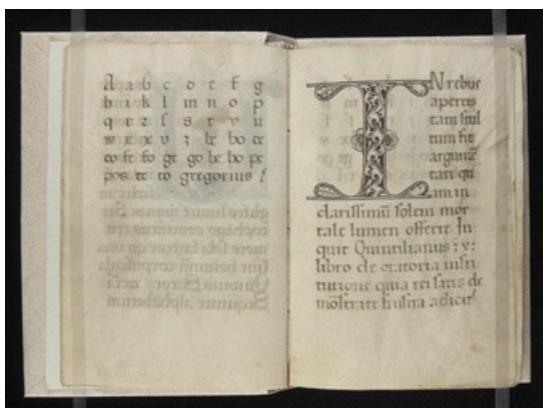 A a b c d e f g
h i k l m n o p
q r ꝛ ſ s t v u
w x y z be bo ce
co fe fo ge go he ho pe
po te to gregorius
IN rebus
apertis
tam ſtul
tum ſit
argumē
tari qu
am in
clariſſimū ſolem mor
tale lumen offerre In
quit Quintilianus : v :
libro de oratoria inſti
tutione quia rei ſatis de
mōſtrate fruſtra adicit